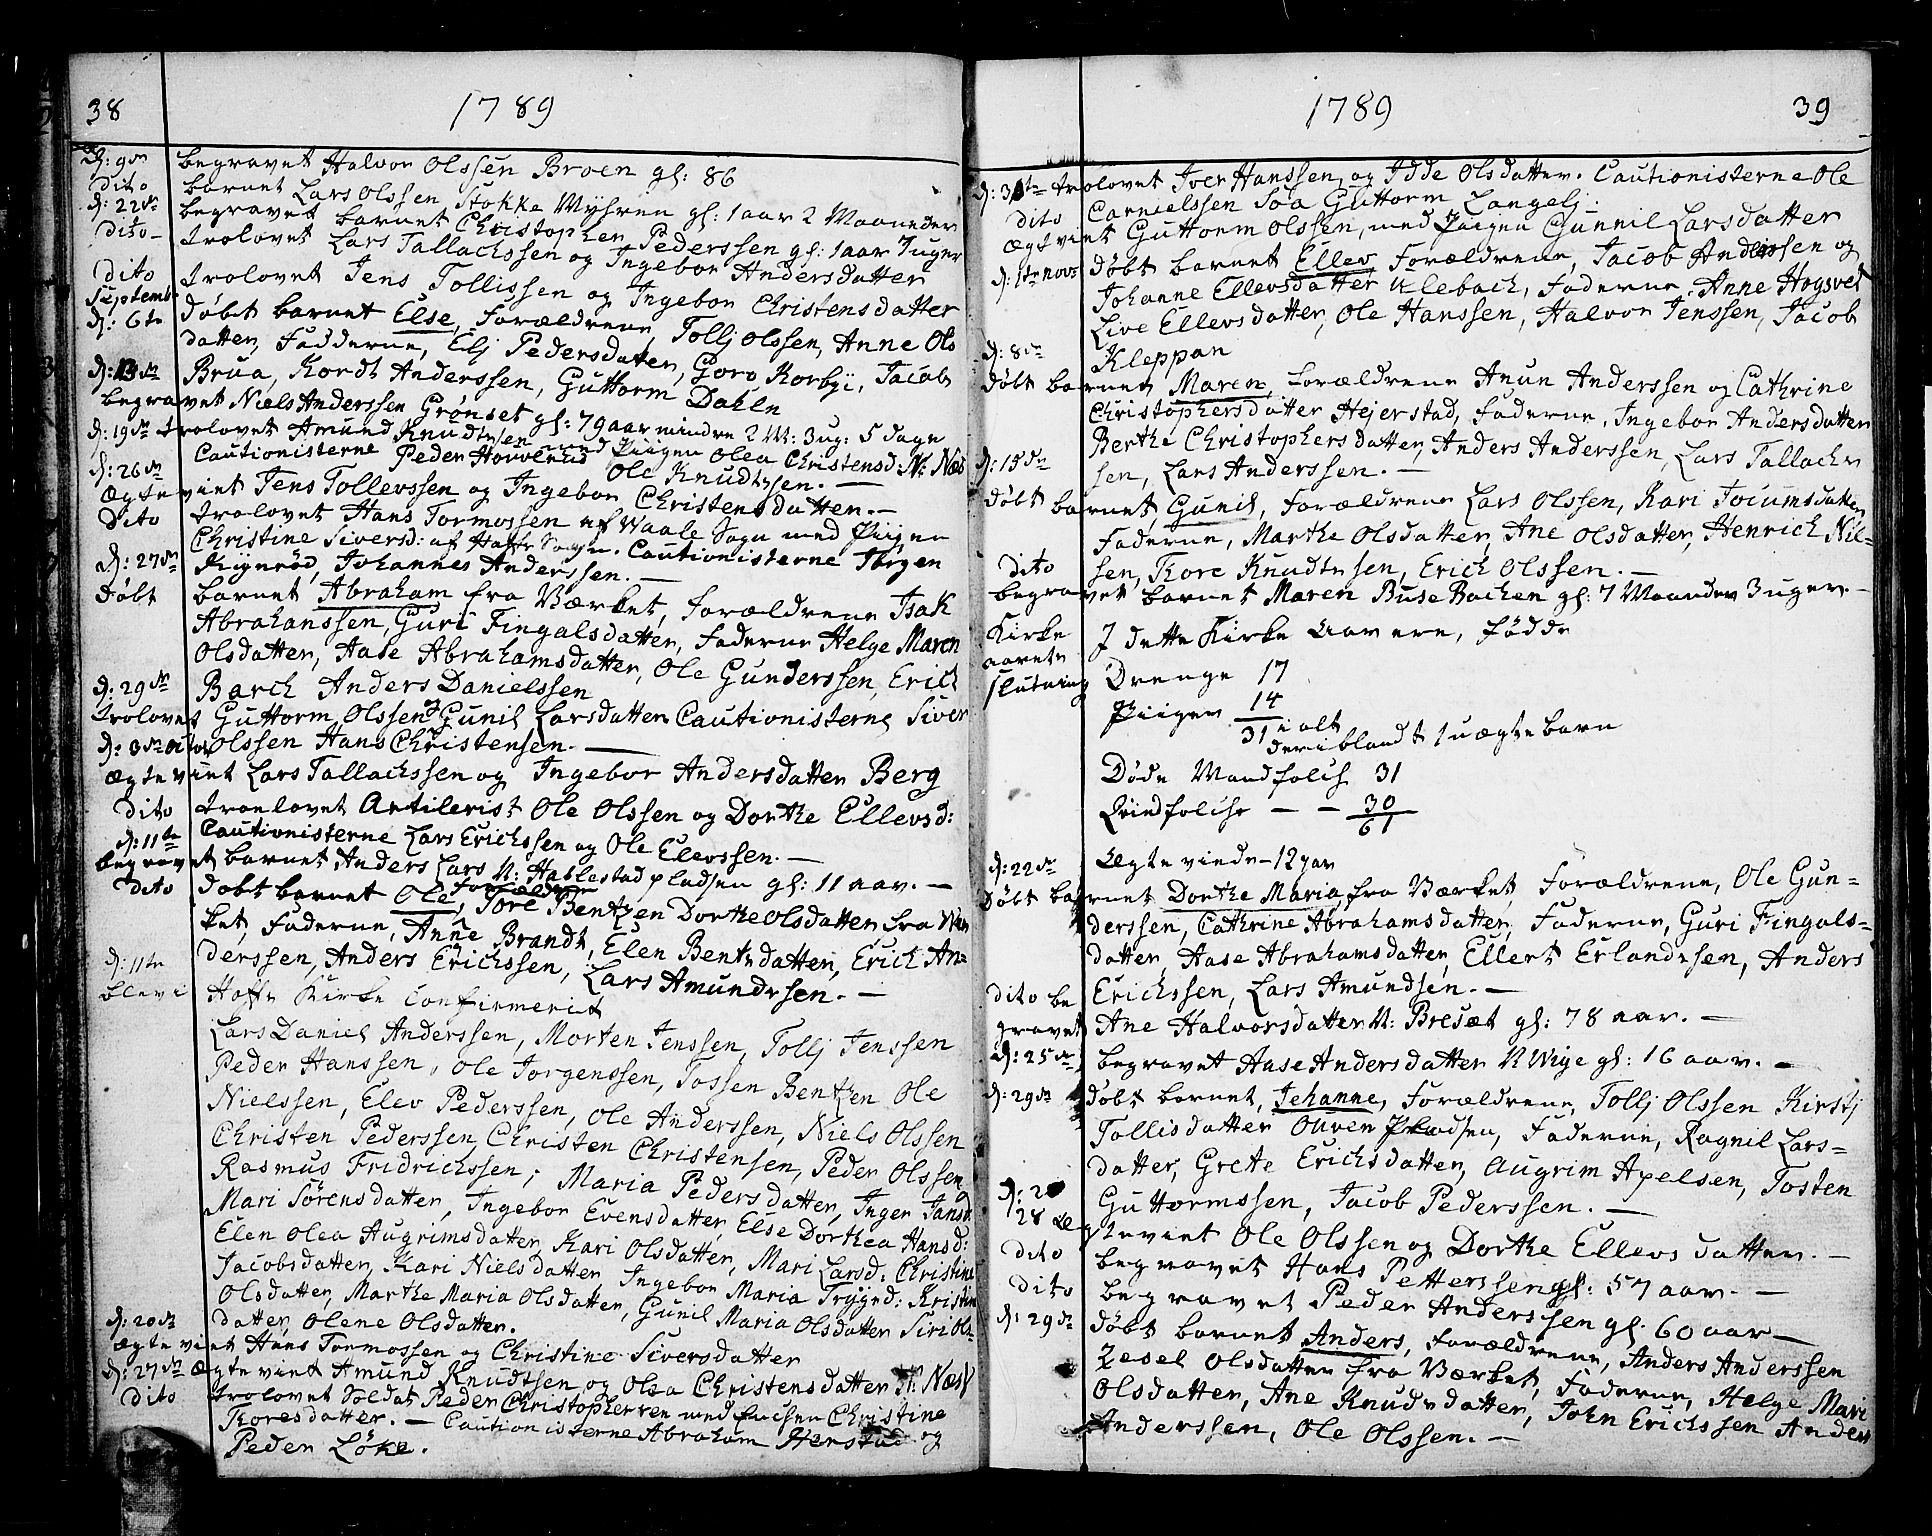 38 1789
d: 9de begravet Halvor Olssen Broen gl: 86
dito barnet Lars Olssen Stokke Myhren gl: 1 aar 2 Maaneder
d: 22de begravet barnet Christopher Pederssen gl: 1 aar 7 uger
dito trolovet Lars Tallachssen og Ingebor Andersdatter
dito trolovet Jens Tollissen og Ingebor Christensdatter
Septembr
d: 6te døbt barnet Else, Forældrene, Tollj Olssen, Anne Ols
datter, Fadderne, Elj Pedersdatter, Goro Korbÿi, Jacob
Brua, Kordt Anderssen, Guttorm Dahle
d: 13de
begravet Niels Anderssen Grønset gl: 79 aar mindre 2 M: 3 ug: 5 dage
d: 19de trolovet Amund Knudtssen med Piigen Olea Christensd: N: Næs
Cautionisterne Peder Houvlerud Ole Knudtssen. —
d: 26de
Ægteviet Jens Tollevssen og Ingebor Christensdatter. —
dito trolovet Hans Tormossen af Waale Sogn med Piigen
Christine Siversd: af Hoffs Sogn. Cautionisterne Jörgen
Kignröd, Johannes Anderssen. —
d: 27de
døbt barnet Abraham fra Værket, Forældrene Isak
Abrahanssen, Guri Fingalsdatter, Faderne Helge Maren
Olsdatter, Aase Abrahamsdatter, Ole Gunderssen, Erich
Barch Anders Danielssen
d: 29de
trolovet Guttorm Olssen & Gunil Larsdatter Cautionisterne Siver
Olssen Hans Christensen. —
d: 3de Octob
Ægteviet Lars Tallachssen og Ingebor Andersdatter Berg
dito troelovet Artilerist Ole Olssen og Dorthe Ellevsd:
Cautionisterne Lars Erichssen og Ole Elevssen. —
d: 11te
begravet barnet Anders Lars N: Hablestad pladsen gl: 11 aar. —
dito døbt barnet Ole, Forældrene Tore Bentzen Dorthe Olsdatter fra Wær
ket, Faderne, Anne Brandt, Elen Bentsdatter, Erich An=
derssen, Anders Erichssen, Lars Amundsen. —
d: 11te
blev i Hoffs Kirke Confirmerit
Lars Daniel Anderssen, Morten Jenssen, Tollj Jenssen
Peder Hanssen, Ole Jorgenssen, Tossen Bentzen Ole
Nielssen, Elev Pederssen, Ole Anderssen, Niels Olssen
Christen Pederssen, Christen Christensen, Peder Olssen
Rasmus Fridrichssen; Maria Pedersdatter, Inger Jansd
Mari Sörensdatter, Ingebor Evensdatter, Else Dorthea Hansd:
Elen Olea Augrimsdatter, Kari Olsdatter, Mari Larsd: Christine
Jacobsdatter, Kari Nielsdatter, Ingebor Maria Trygvd: Kristin
Olsdatter, Marthe Maria Olsdatter, Gunil Maria Olsdatter Siri Ols=
datter, Olene Olsdatter.
d: 20de
ægteviet Hans Tormossen og Christine Siversdatter
d: 27de Ægteviet Amund Knudtsen og Olea Christensdatter N: Næss
dito trolovet Soldat Peder Christophersen med Christine
Toresdatter. — Cautionisterne Abraham Herstad og
Peder Löke.
1789 39
d: 31te trolovet Iver Hanssen og Idde Olsdatter. Cautionisterne Ole
Carnielssen Soa Guttorm Langelj:
dito
Ægteviet Guttorm Olssen, med Piigen Gunnil Larsdatter
d: 1te Novr døbt barnet Ellev Forældrene, Jacob Anderssen og
Johanne Ellevsdatter Klebach, Faderne, Anne Hogsvet
Live Ellevsdatter, Ole Hanssen, Halvor Jenssen, Jacob
Kleppan
d: 8de
døbt barnet Maren, Forældrene Anun Anderssen og Cathrine
Christophersdatter Hejerstad, Faderne, Ingebor Andersdatter
Berthe Christophersdatter, Anders Anderssen, Lars Tallachs
sen, Lars Anderssen. —
d: 15de
døbt barnet, Gunil, Forældrene Lars Olssen, Kari Jocumsdatter
Faderne, Marthe Olsdatter, Ane Olsdatter, Henrich Nil=
sen, Tore Knudtssen, Erich Olssen. —
dito
begravet barnet Maren Buse Bachen gl: 7 Maander 3 uger. —
Kirke
aarets
slutning
I dette Kirke Aar ere, fødde
Drenge 17
Piiger 14
31 i alt
deriblandt 1 uægte barn
Døde Mandfolch 31
Qvindfolche — — 30
61
Ægteviede — 12 par
d: 22de
døbt barnet Dorthe Maria, fra Værket, Forældrene, Ole Gun=
derssen, Cathrine Abrahamsdatter, Faderne, Guri Fingals=
datter, Aase Abrahamsdatter, Ellert Erlandssen, Anders
Erichssen, Lars Amundsen. —
dito be
gravet Ane Halvorsdatter N: Bresæt gl: 78 aar. —
d: 25de begravet Aase Andersdatter N Wige gl: 16 aar. —
d: 29de døbt barnet, Johanne, Forældrene, Tollj Olssen Kirstj
Tollisdatter Ouren Pladsen, Faderne, Ragnil Lars=
datter, Grete Erichsdatter, Augrim Apelsen, Tosten
Guttormssen, Jacob Pederssen. —
28 Ægteviet Ole Olssen og Dorthe Ellevsdatter. —
dito begravet Hans Petterssen gl: 57 aar. —
dito begravet Peder Anderssen gl: 60 aar —
d: 29de døbt barnet Anders, Forældrene, Anders Anderssen
Zesel Olsdatter fra Værket, Faderne, Helge Mari
Olsdatter, Ane Knudsdatter, John Erichssen Anders
Anderssen, Ole Olssen. —